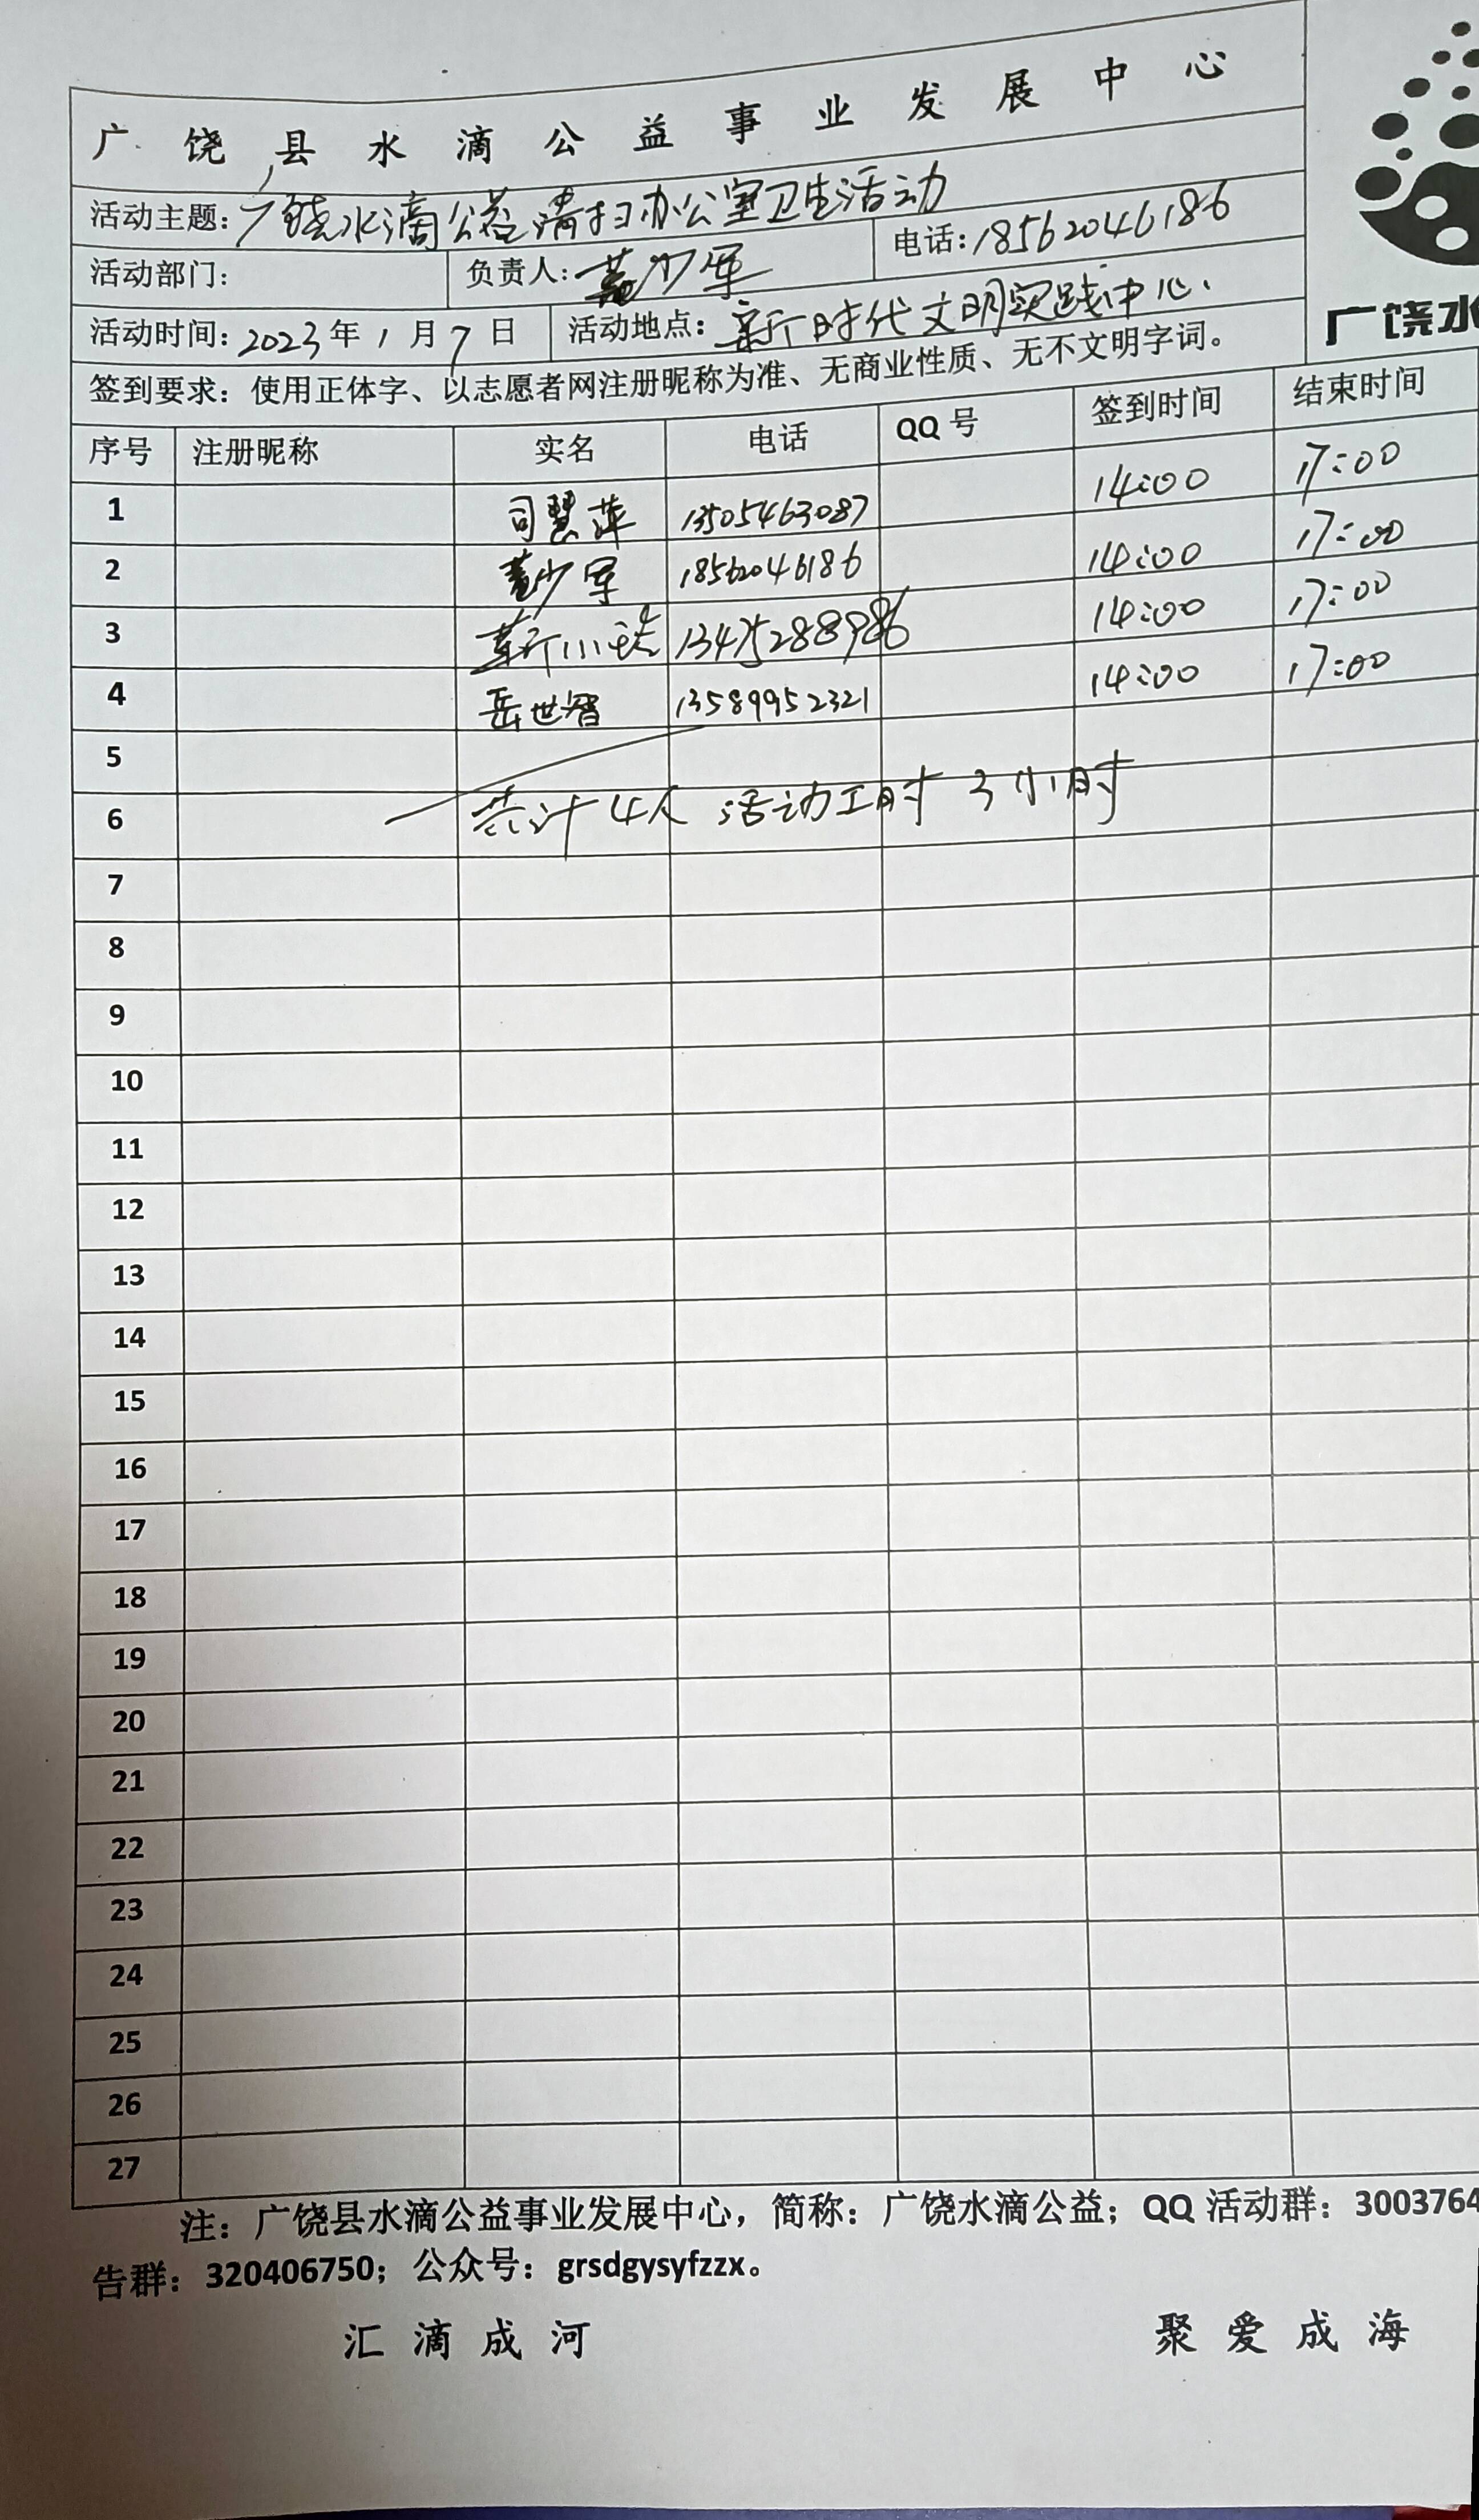 广饶县水滴公益事业发展中心
活动主题：广饶水滴公益清扫办公室卫生活动
活动部门： 负责人：董少军 电话：18562046186
活动时间：2023年1月7日 活动地点：新时代文明实践中心.
广饶水
签到要求：使用正体字、以志愿者网注册昵称为准、无商业性质、无不文明字词。
序号 注册昵称 实名 电话 QQ号 签到时间 结束时间
1 司慧萍 13505463087 14:00 17:00
2 董少军 18562046186 14:00 17:00
3 小 13475288986 14:00 17:00
4 岳世智 13589952321 14:00 17:00
5
6 共计4人 活动工时 3小时
7
8
9
10
11
12
13
14
15
16
17
18
19
20
21
22
23
24
25
26
27
注：广饶县水滴公益事业发展中心，简称：广饶水滴公益；QQ活动群：3003764
告群：320406750；公众号：grsdgysyfzzx。
汇滴成河 聚爱成海